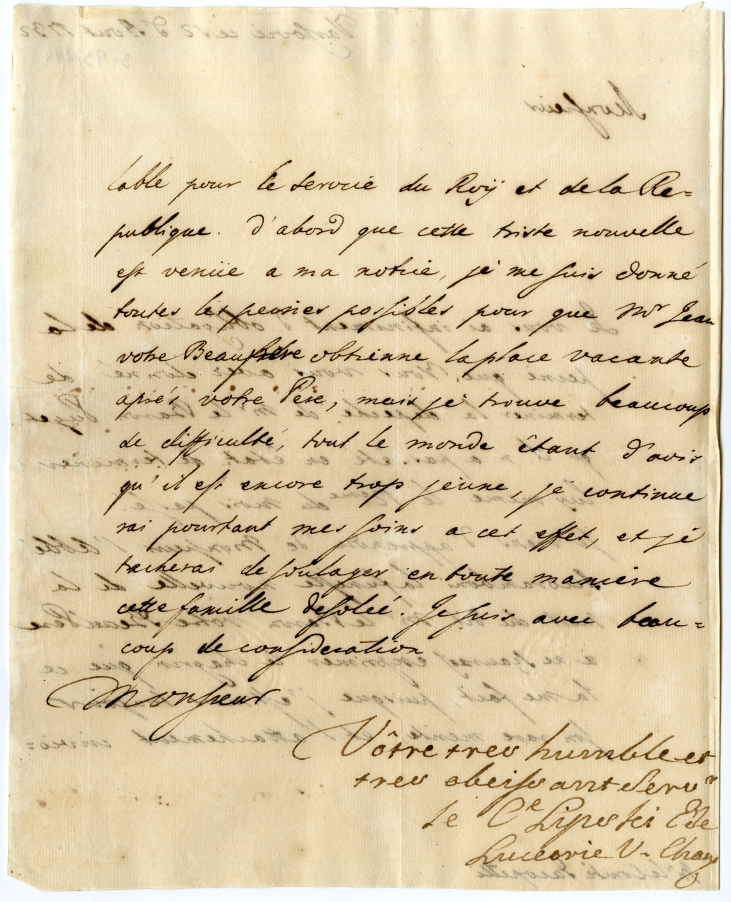 table pour le service du Roÿ et de la Re=
publique. d'abord que cette triste nouvelle
est venüe a ma notice, je me suis donné
toutes les peines possibles pour que Mr Jean
votre Beaufrere obtienne la place vacante
aprés votre Pere, mais je trouve beaucoup
de difficulté, tout le monde êtant d'avis
qu'il est encore trop jeune, je continue
rai pourtant mes soins a cet effet, et je
tacherai de soulager en toute maniere
cette famille desolée. Je suis avec beau=
coup de consideration
Monsieur
Vôtre tres humble et
tres obeissant Serv r
le Cte Lipski E de
Luceorie V. Chan